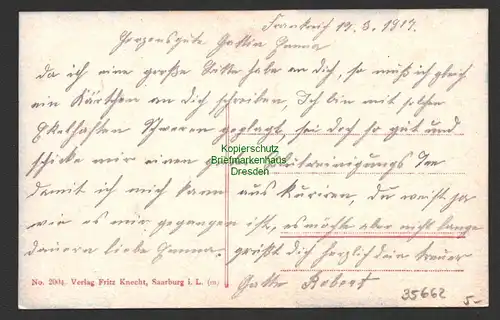 Frankreich 19.3.1917.
Herzensgute Gattin Hanna
da ich eine große Bitte habe an dich, so muß ich gleich
ein Kärtchen an dich schreiben, Ich bin mit solchen
Ekelhaften Schweren geplagt, sei doch so gut und
schicke mir einen Blutreinigungs Tee
damit ich mich kann aus kuriren, du weist ja
wie es mir gegangen ist, es möchte aber nicht lange
dauern liebe Hanna. grüßt dich herzlich dein treuer
Gatte Robert
Kopierschutz
Briefmarkenhaus
Dresden
No. 2004. Verlag Fritz Knecht, Saarburg i. L. (m)
35662
5-